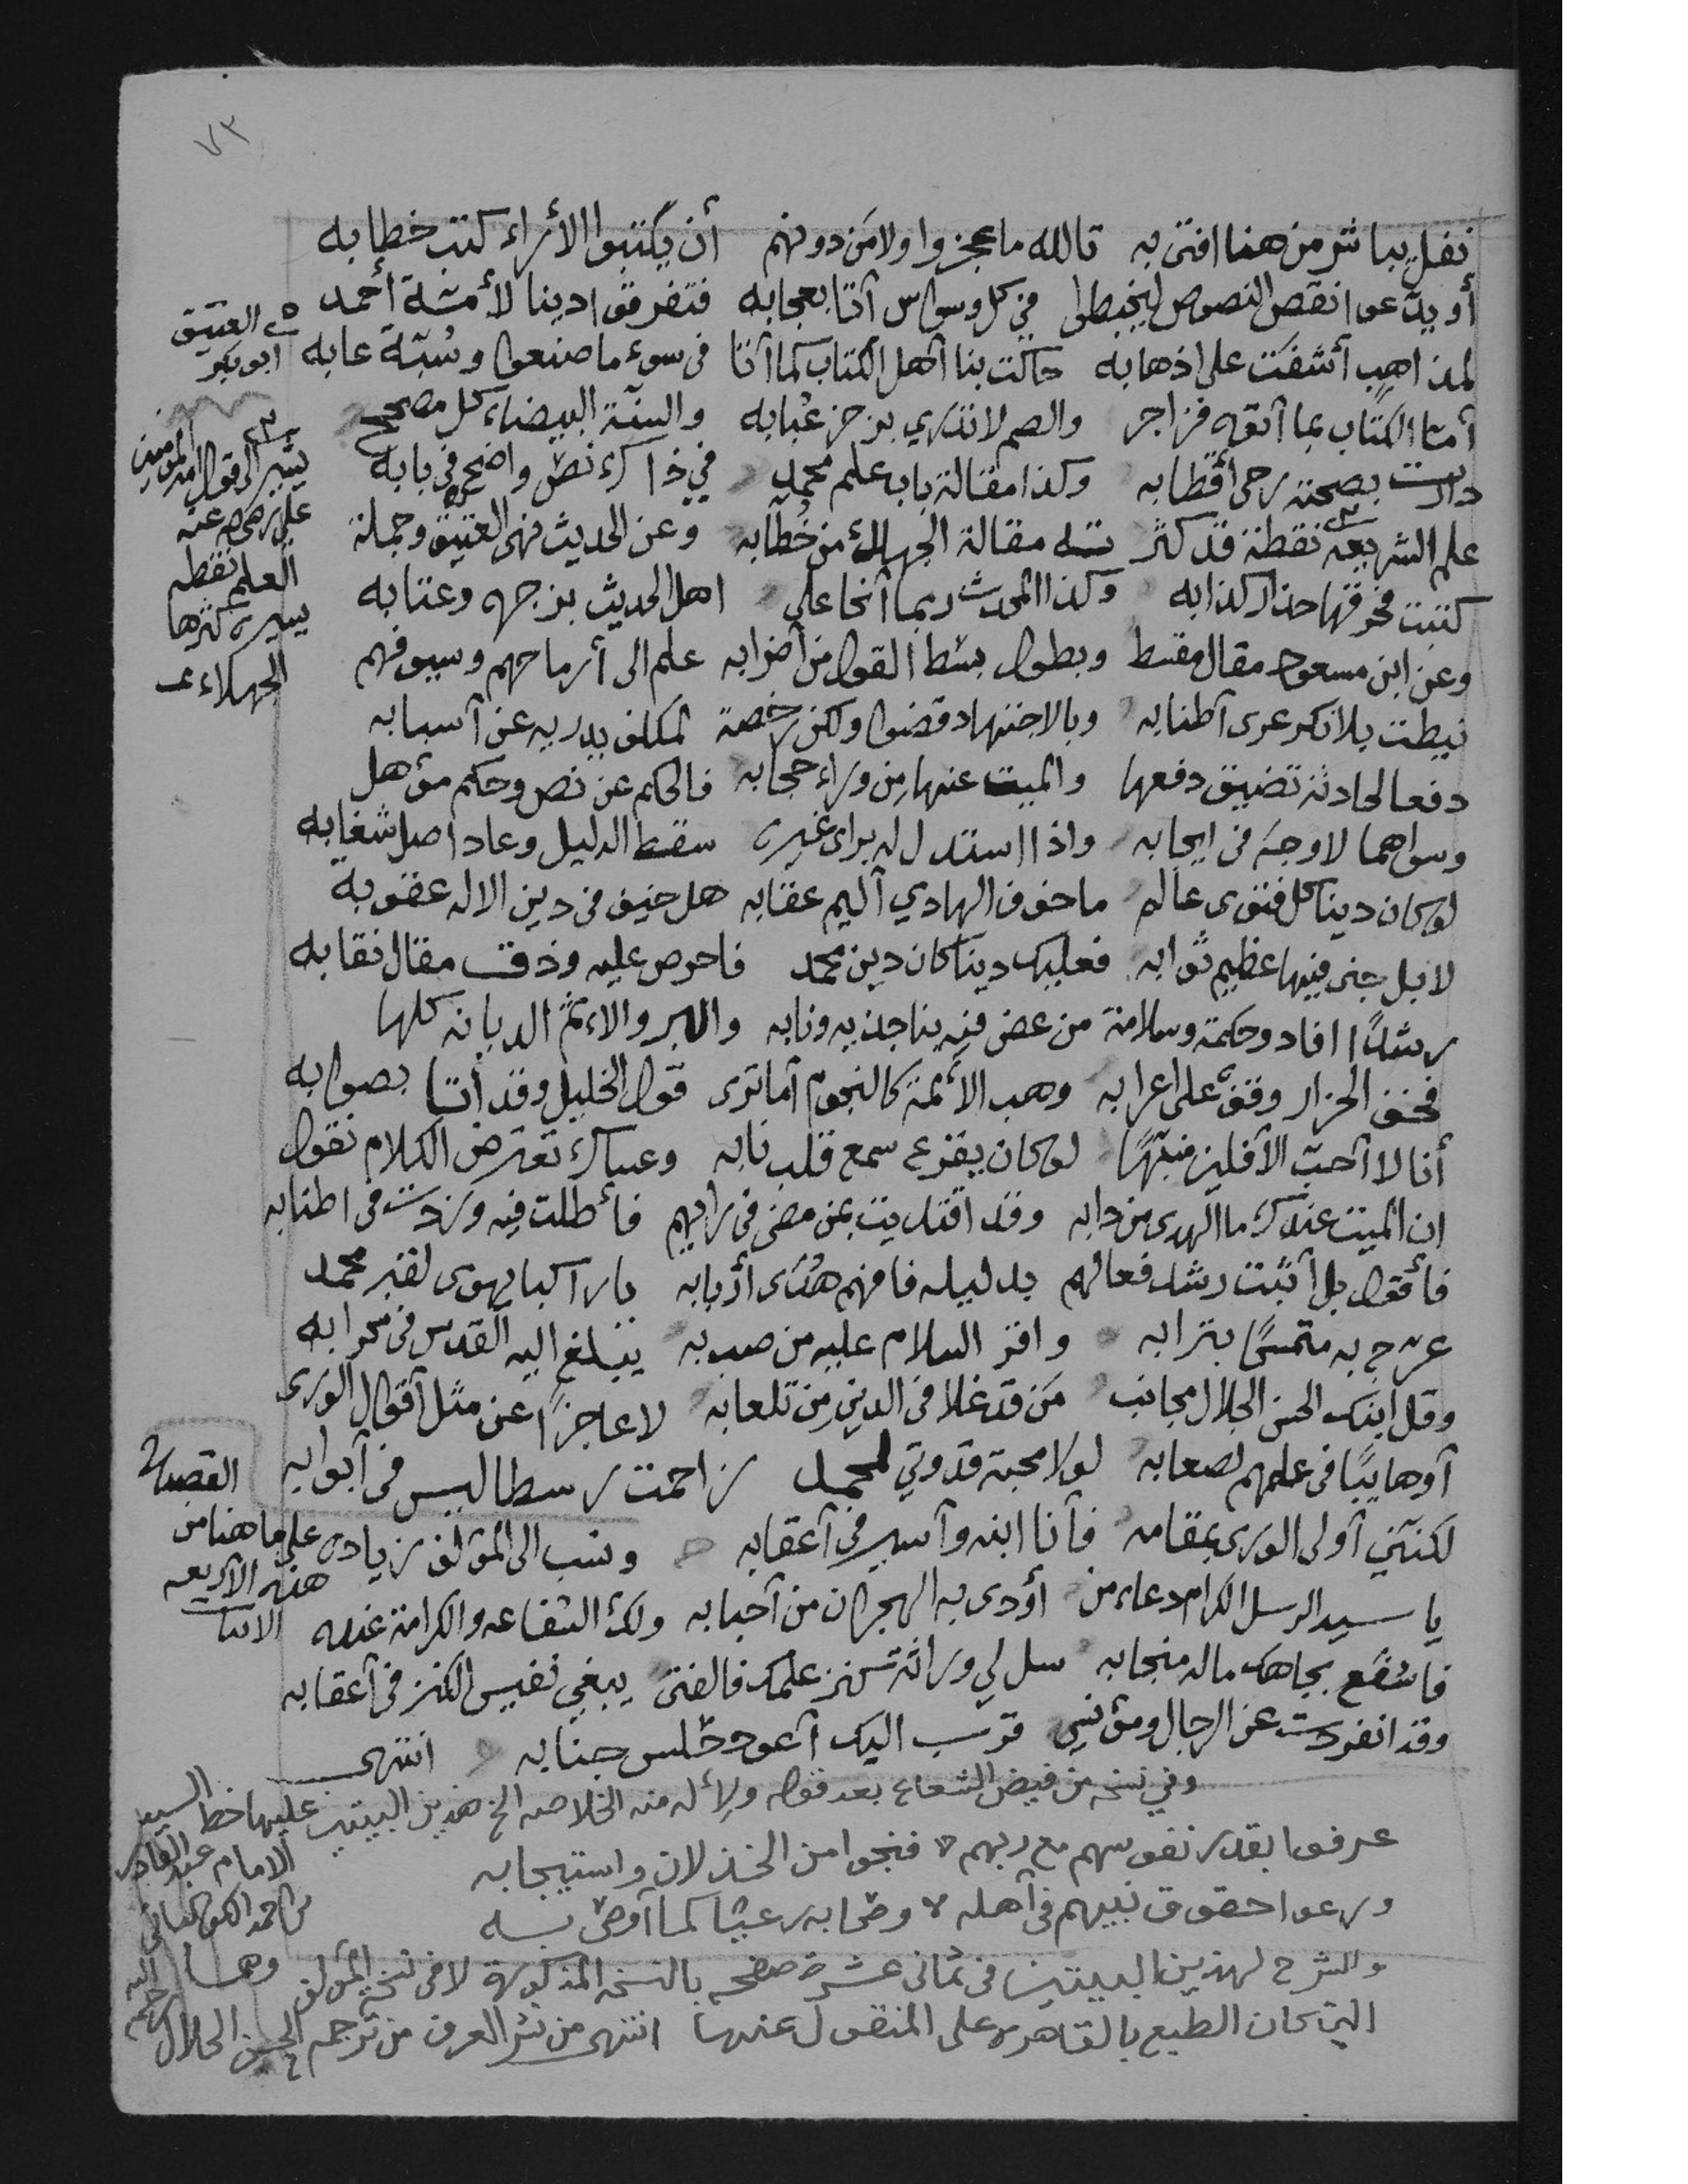 ٧٣
نفل بباشر من هنا افتى به تالله ما عجزوا ولا من دونهم أن يكتبوا الأراء كتب خطابه
أو يدّعوا نقص النصوص ليخبطوا في كل وسواس أتا بعجابه فتفرقوا دينا لأمة أحمد
لمذاهب أشفت على اذهابه حاكت بنا أهل الكتاب كما أتا في سوء ما صنعوا وسُبّة عابه
أمّا الكتاب بما أتوه فزاجر والصم لا تدري بزجر عُبابه والسنّة البيضاء كل مصحح
دارت بصحته رحى أقطابه وكذا مقالة باب علم محمد في ذاك نص واضح في بابه
علم الشريعة نقطة قد كثرت مقالة الجهال من خُطّابه وعن الحديث نهى العتيق وجملة
كتبت فحرقها حذار كذابه وكذا المحدث ربما أنحا على اهل الحديث بزجره وعتابه
وعن ابن مسعود مقال مقسط ويطول بسط القول من أضرابه علم الى أرماحهم وسيوفهم
نيطت بلا نكر عرى أطنابه وبالاجتهاد قضوا ولكن رخصة لمكلف يدريه عن أسبابه
دفعا لحادثة تضيق دفعها والميت عنها من وراء حجابه فالحكم عن نص وحكم مؤهل
وسواهما لا وجه في ايجابه واذا استدل له براى غيره سقط الدليل وعاد اصل شغابه
لو كان دينا كل فتوى عالم ما خوف الهادي أليم عقابه هل خيف في دين الاله عقوبة
لا بل جنى فيها عظيم ثوابه فعليك دينا كان دين محمد فاحرص عليه وذق مقال نقابه
رشدًا افاد وحكمة وسلامة من عض فيه بناجذيه ونابه والبر والاءثم الديانة كلها
فخف الحزار وقف على اعرابه وهب الأئمة كالنجوم أما ترى قول الخليل وقد أتى بصوابه
أنا لا أحب الآفلين منبّهًا لو كان يقرع سمع قلب نابه وعساك تعترض الكلام تقول
ان الميت عندك ما الهدى من دابه وقد اقتديت بمن مضى في رايهم فأطلت فيه وزدت في اطنابه
فأقول بل أثبت رشد فعالهم بدليله فافهم هُدى أربابه يا راكبا يهوى لقبر محمد
عرّج به متمسّحًا بترابه واقر السلام عليه من صب به يبلغ اليه القدس في محرابه
وقل ابنك الحسن الجلال مجانب من قد غلا في الدين من تلعابه لا عاجزًا عن مثل أقوال الورى
أو هايبًا في علمهم لصعابه لولا محبة قدوتي لمحمد زاحمت رسطاليس في أبوابه
لكنني أولى الورى بمقامه فأنا ابنه وأسير في أعقابه ونسب الى المؤلف زيادة على ما هنا من
هذه الاربعه
الابيات
يا سيد الرسل الكرام دعاء من أودى به الهجران من أحبابه ولك الشفاعه والكرامة عنده
فاشفع بجاهك ماله منجابه سل لي وراثة كنز علمك فالفتى يبغي نفيس الكنز في أعقابه
وقد انفردت عن الرجال ومؤنسي قرب اليك أعود حلس جنابه انتهى
وفي نسخه من فيض الشعاع بعد قوله ولأله منه الخلاصه الخ هذين البيتين عليها خط السيد
الامام عبد القادر
بن احمد الكوكباني
عرفوا بقدر نفوسهم مع ربهم فنجوا من الخذلان واستيجابه
ورعوا حقوق نبيهم في أهله وصحابه رعيا كما أوصى به
والشرح لهذين البيتين في ثماني عشرة صفحه بالنسخه المذكورة لا في نسخة المؤلف وهما
التي كان الطبع بالقاهره على المنقول عنها انتهى من نشر العرف من ترجمة الحسن الجلال رحمه الله
العتيق
ابو بكر
يشير الى قول امير المؤمنين
علي رضي الله عنه
العلم نقطه
يسيره كثرها
الجهلاء
القصيدة